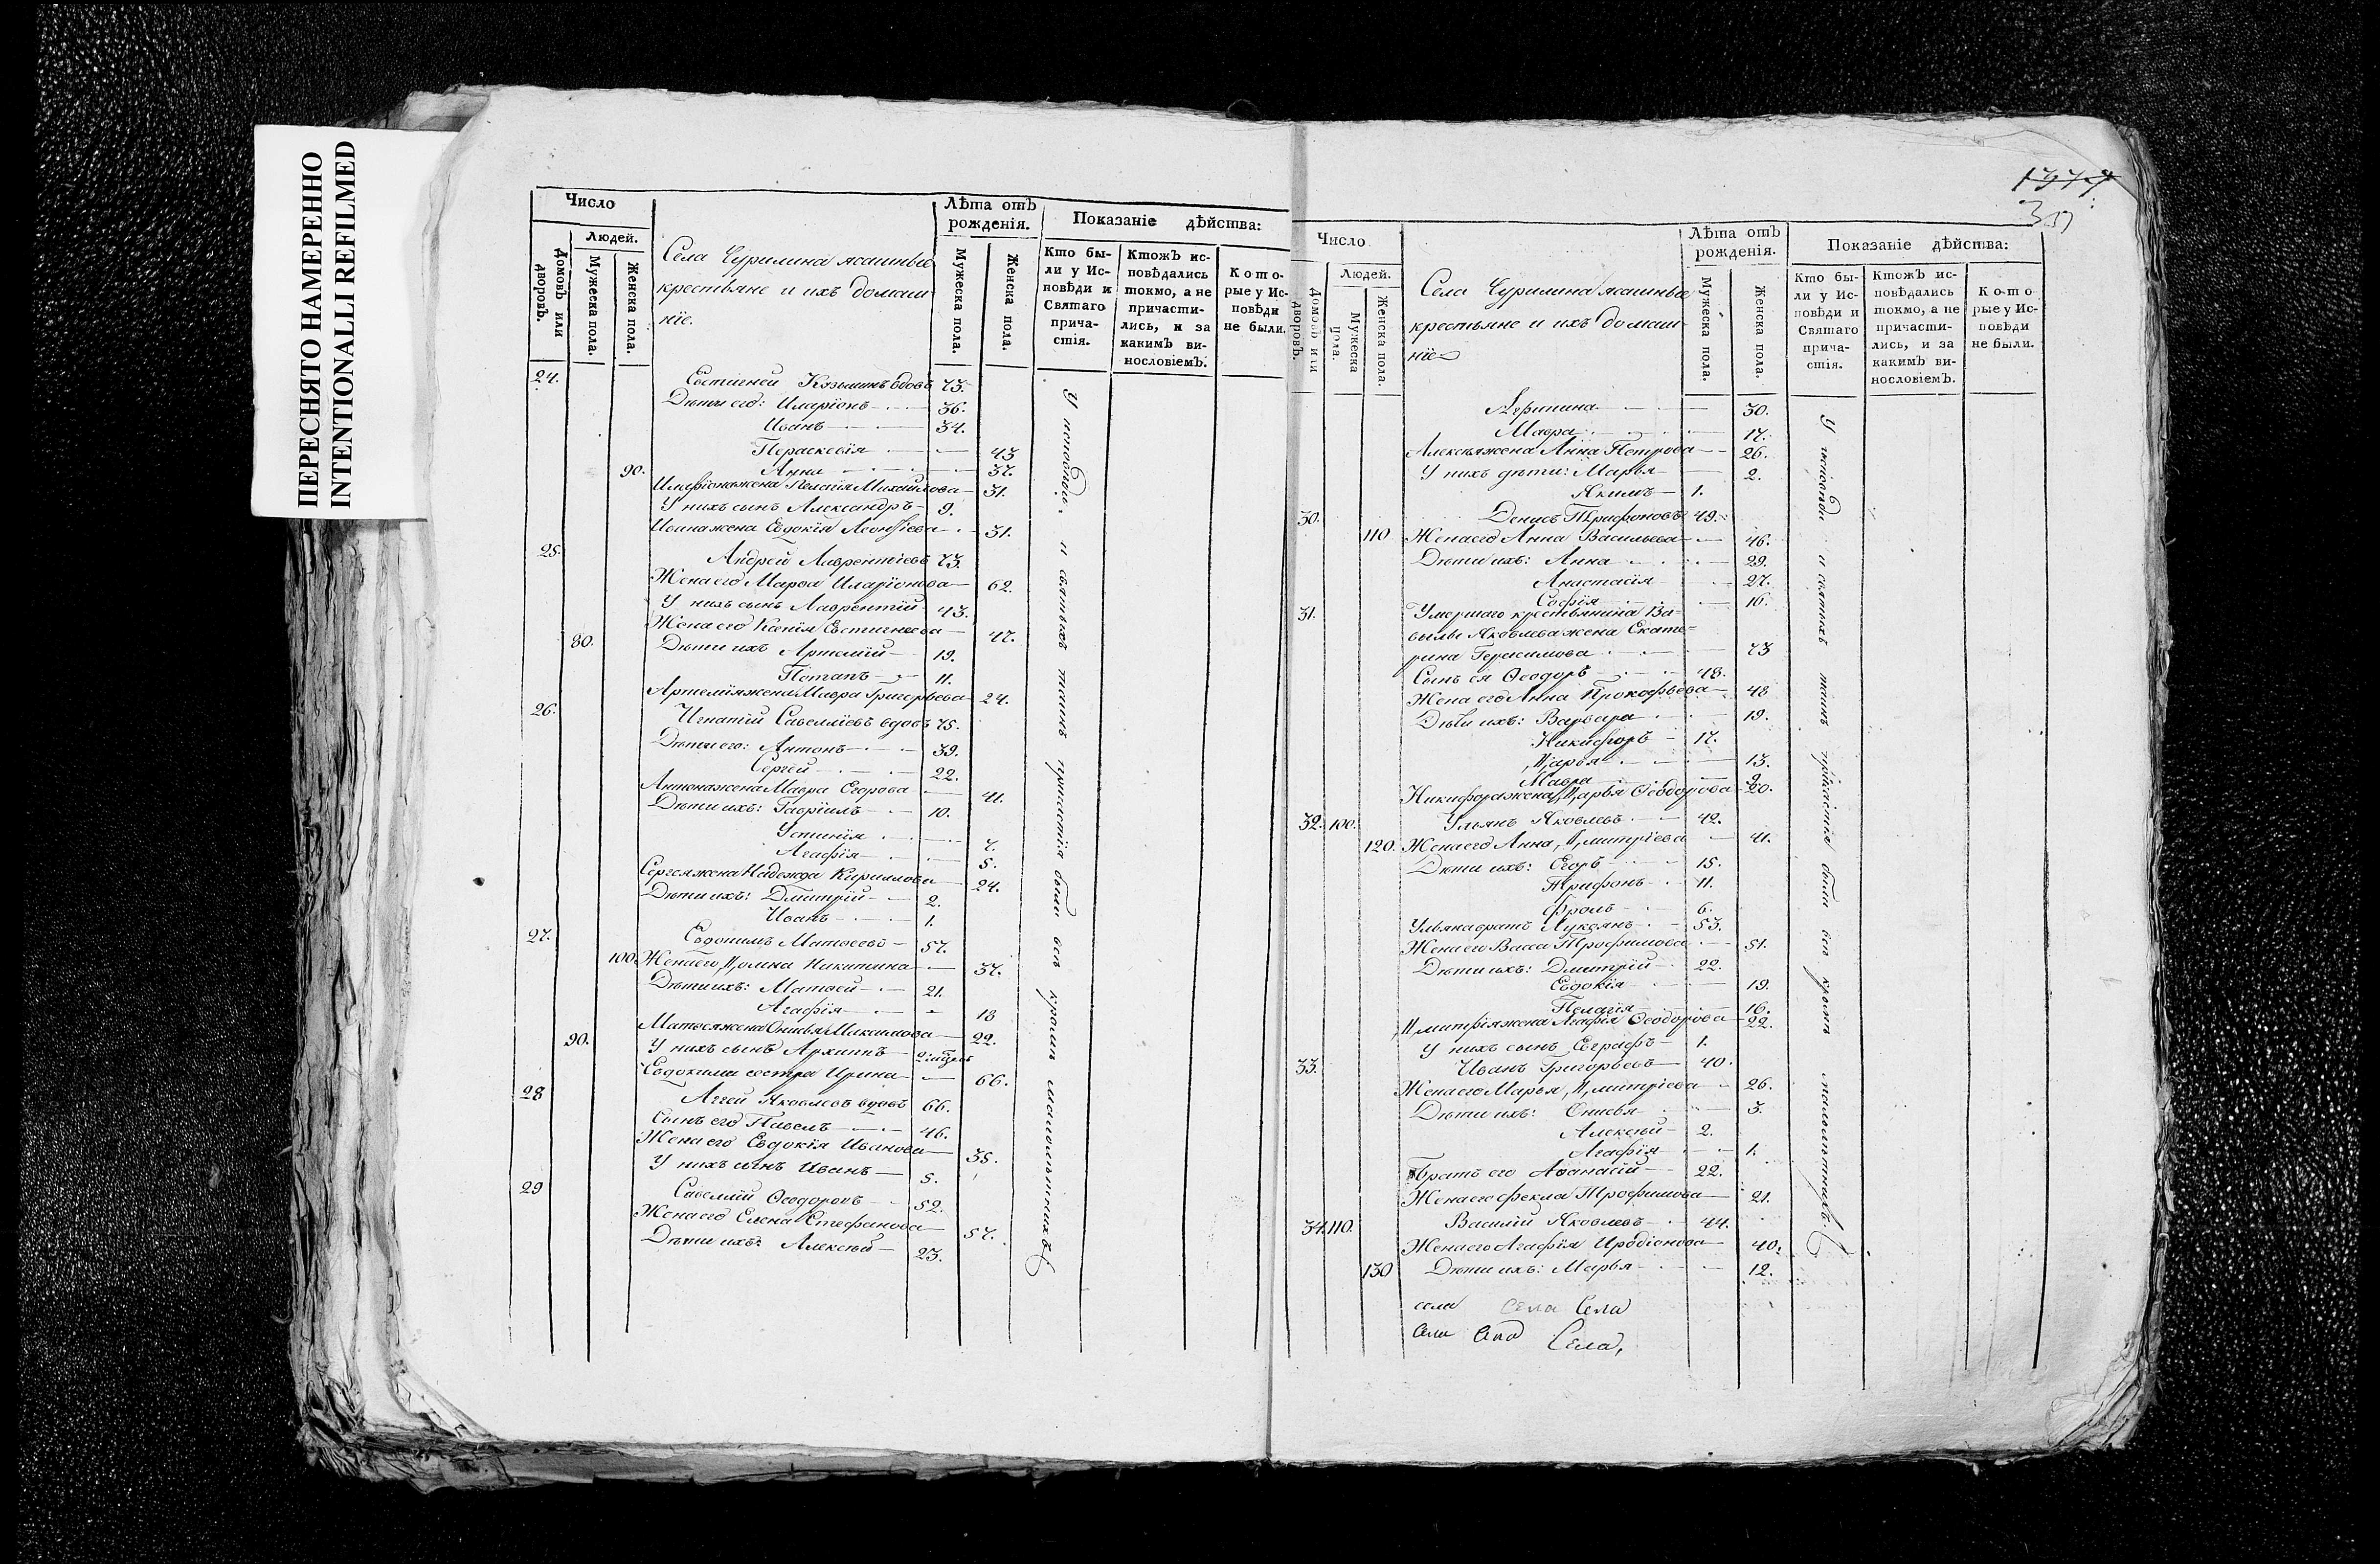 ПЕРЕСНЯТО НАМЕРЕННО
INTENTIONALLI REFILMED
Число
Людей.
Домовъ или дворовъ.
Мужеска пола.
Женска пола.
Села Чурилина ясашные
крестьяне и ихъ домаш
нїе.
Лѣта отъ
рожденія.
Мужеска пола.
Женска пола.
Показаніе дѣйства:
Кто бы-
ли у Ис-
повѣди и
Святаго
прича-
стія.
Ктожъ ис-
повѣдались
токмо, а не
причасти-
лись, и за
какимъ ви-
нословіемъ.
Кото-
рые у Ис-
повѣди
не были.
24. Евстигней Козьминъ вдовъ 73.
Дѣти его: Иларїонъ 36.
Иванъ 34.
Параскевїя 43
90. Анна 37.
Иларїона жена Пелагїя Михайлова 31.
У нихъ сынъ Александръ 9.
Ивана жена Евдокїя Леонтїева 31.
25. Андрей Лаврентїевъ 73.
Жена его Марѳа Иларїонова 62.
У нихъ сынъ Лаврентїй 43.
Жена его Ксенїя Евстигнеева 47.
80. Дѣти ихъ Артемїй 19.
Потапъ 11.
Артемїя жена Мавра Григорьева 24.
26. Игнатїй Савеллїевъ вдовъ 75.
Дѣти его: Антонъ 39.
Сергей 22.
Антона жена Мавра Егорова 41.
Дѣти ихъ: Гаврїилъ 10.
Устинїя 7.
Агафїя 5.
Сергея жена Надежда Кирилова 24.
Дѣти ихъ: Дмитрїй 2.
Иванъ 1.
27. Евдокимъ Матвеевъ 57.
100. Жена его Домна Никитина 37.
Дѣти ихъ: Матвей 21.
Агафїя 13
Матвея жена Онисья Максимова 22.
90. У нихъ сынъ Архиппъ
Евдокима сестра Ирина 66.
28 Аггей Яковлевъ вдовъ 66.
Сынъ его Павелъ 46.
Жена его Евдокїя Иванова 35.
У нихъ сынъ Иванъ 5.
29 Савеллїй Ѳеодоровъ 52.
Жена его Елена Стефанова 57.
Дѣти ихъ: Алексѣй 23.
У исповѣди и святыхъ таинъ причастїя были всѣ кромѣ малолѣтнихъ
1977
Число
Людей.
Домовъ или дворовъ.
Мужеска пола.
Женска пола.
Села Чурилина ясашные
крестьяне и ихъ домаш-
нїе
Лѣта отъ
рожденія.
Мужеска пола.
Женска пола.
Показаніе дѣйства:
Кто бы-
ли у Ис-
повѣди и
Святаго
прича-
стія.
Ктожъ ис-
повѣдались
токмо, а не
причасти-
лись, и за
какимъ ви-
нословіемъ.
Кото
рые у Ис-
повѣди
не были.
Агрипина 30.
Мавра 17.
Алексѣя жена Анна Петрова 26.
У нихъ дѣти: Марья 2.
Якимъ 1.
30. Денисъ Трифоновъ 49.
110 Жена его Анна Васильева 46.
Дѣти ихъ: Анна 29.
Анастасїя 27.
Софїя 16.
31. Умершаго крестьянина Ва-
вилы Яковлева жена Екате-
рина Герасимова 73
Сынъ ея Ѳеодоръ 48.
Жена его Анна Прокофьева 48
Дѣти ихъ: Варвара 19.
Никифоръ 17.
Дарья 13.
Мавра 9.
Никифора жена Дарья Ѳеодорова 20.
32. 100. Ульянъ Яковлевъ 42.
120. Жена его Анна Дмитрїева 41.
Дѣти ихъ: Егоръ 15.
Трифонъ 11.
Фролъ 6.
Ульяна братъ Лукоянъ 53.
Жена его Васса Трофимова 51.
Дѣти ихъ: Дмитрїй 22.
Евдокїя 19.
Пелагїя 16.
Дмитрїя жена Агафїя Ѳеодорова 22.
У нихъ сынъ Евграфъ 1.
33. Иванъ Григорьевъ 40.
Жена его Марья Дмитрїева 26.
Дѣти ихъ: Онисья 3.
Алексѣй 2.
Агафїя 1.
Братъ его Аѳанасїй 22.
Жена его Фекла Трофимова 21.
34. 110. Василїй Яковлевъ 44.
Жена его Агафїя Иродїонова 40.
130 Дѣти ихъ: Марья 12.
У исповѣди и святыхъ таинъ причастїя были всѣ кромѣ малолѣтнихъ.
села Села Села
Села,